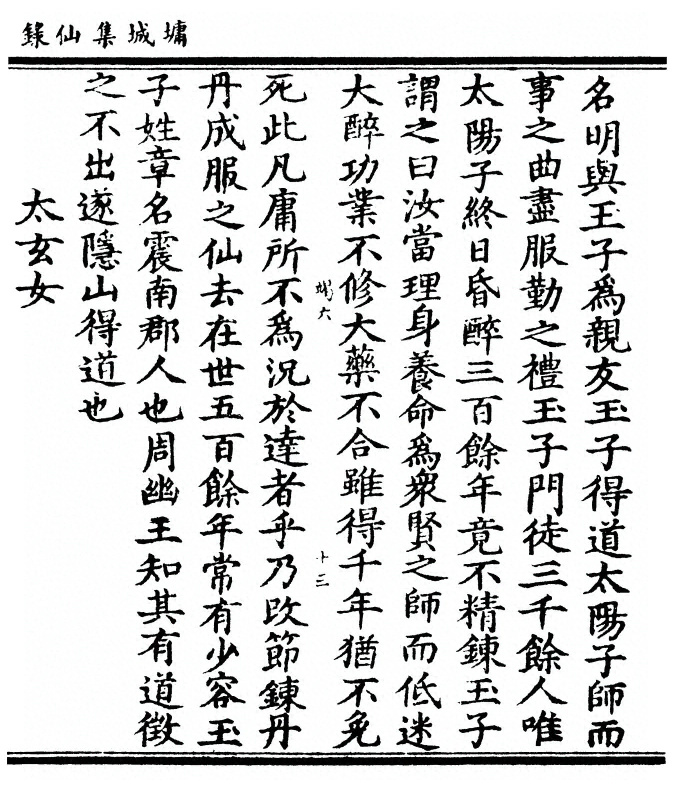 墉城集仙錄
名明與玉子爲親友玉子得道太陽子師而
事之曲盡服勤之禮玉子門徒三千餘人唯
太陽子終日昏醉三百餘年竟不精鍊玉子
謂之曰汝當理身養命爲衆賢之師而低迷
大醉功業不修大藥不合雖得千年猶不免
竭六
十三
死此凡庸所不爲況於達者乎乃改節鍊丹
丹成服之仙去在世五百餘年常有少容玉
子姓章名震南郡人也周幽王知其有道徵
之不出遂隱山得道也
太玄女